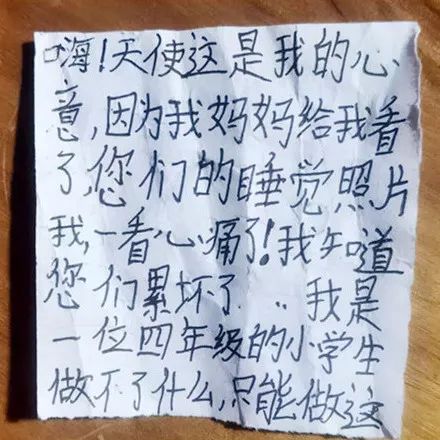 嗨!天使这是我的心
意,因为我妈妈给我看
了,您们的睡觉照片
我,一看心痛了!我知道
您们累坏了..我是
一位四年级的小学生
做不了什么,只能做这